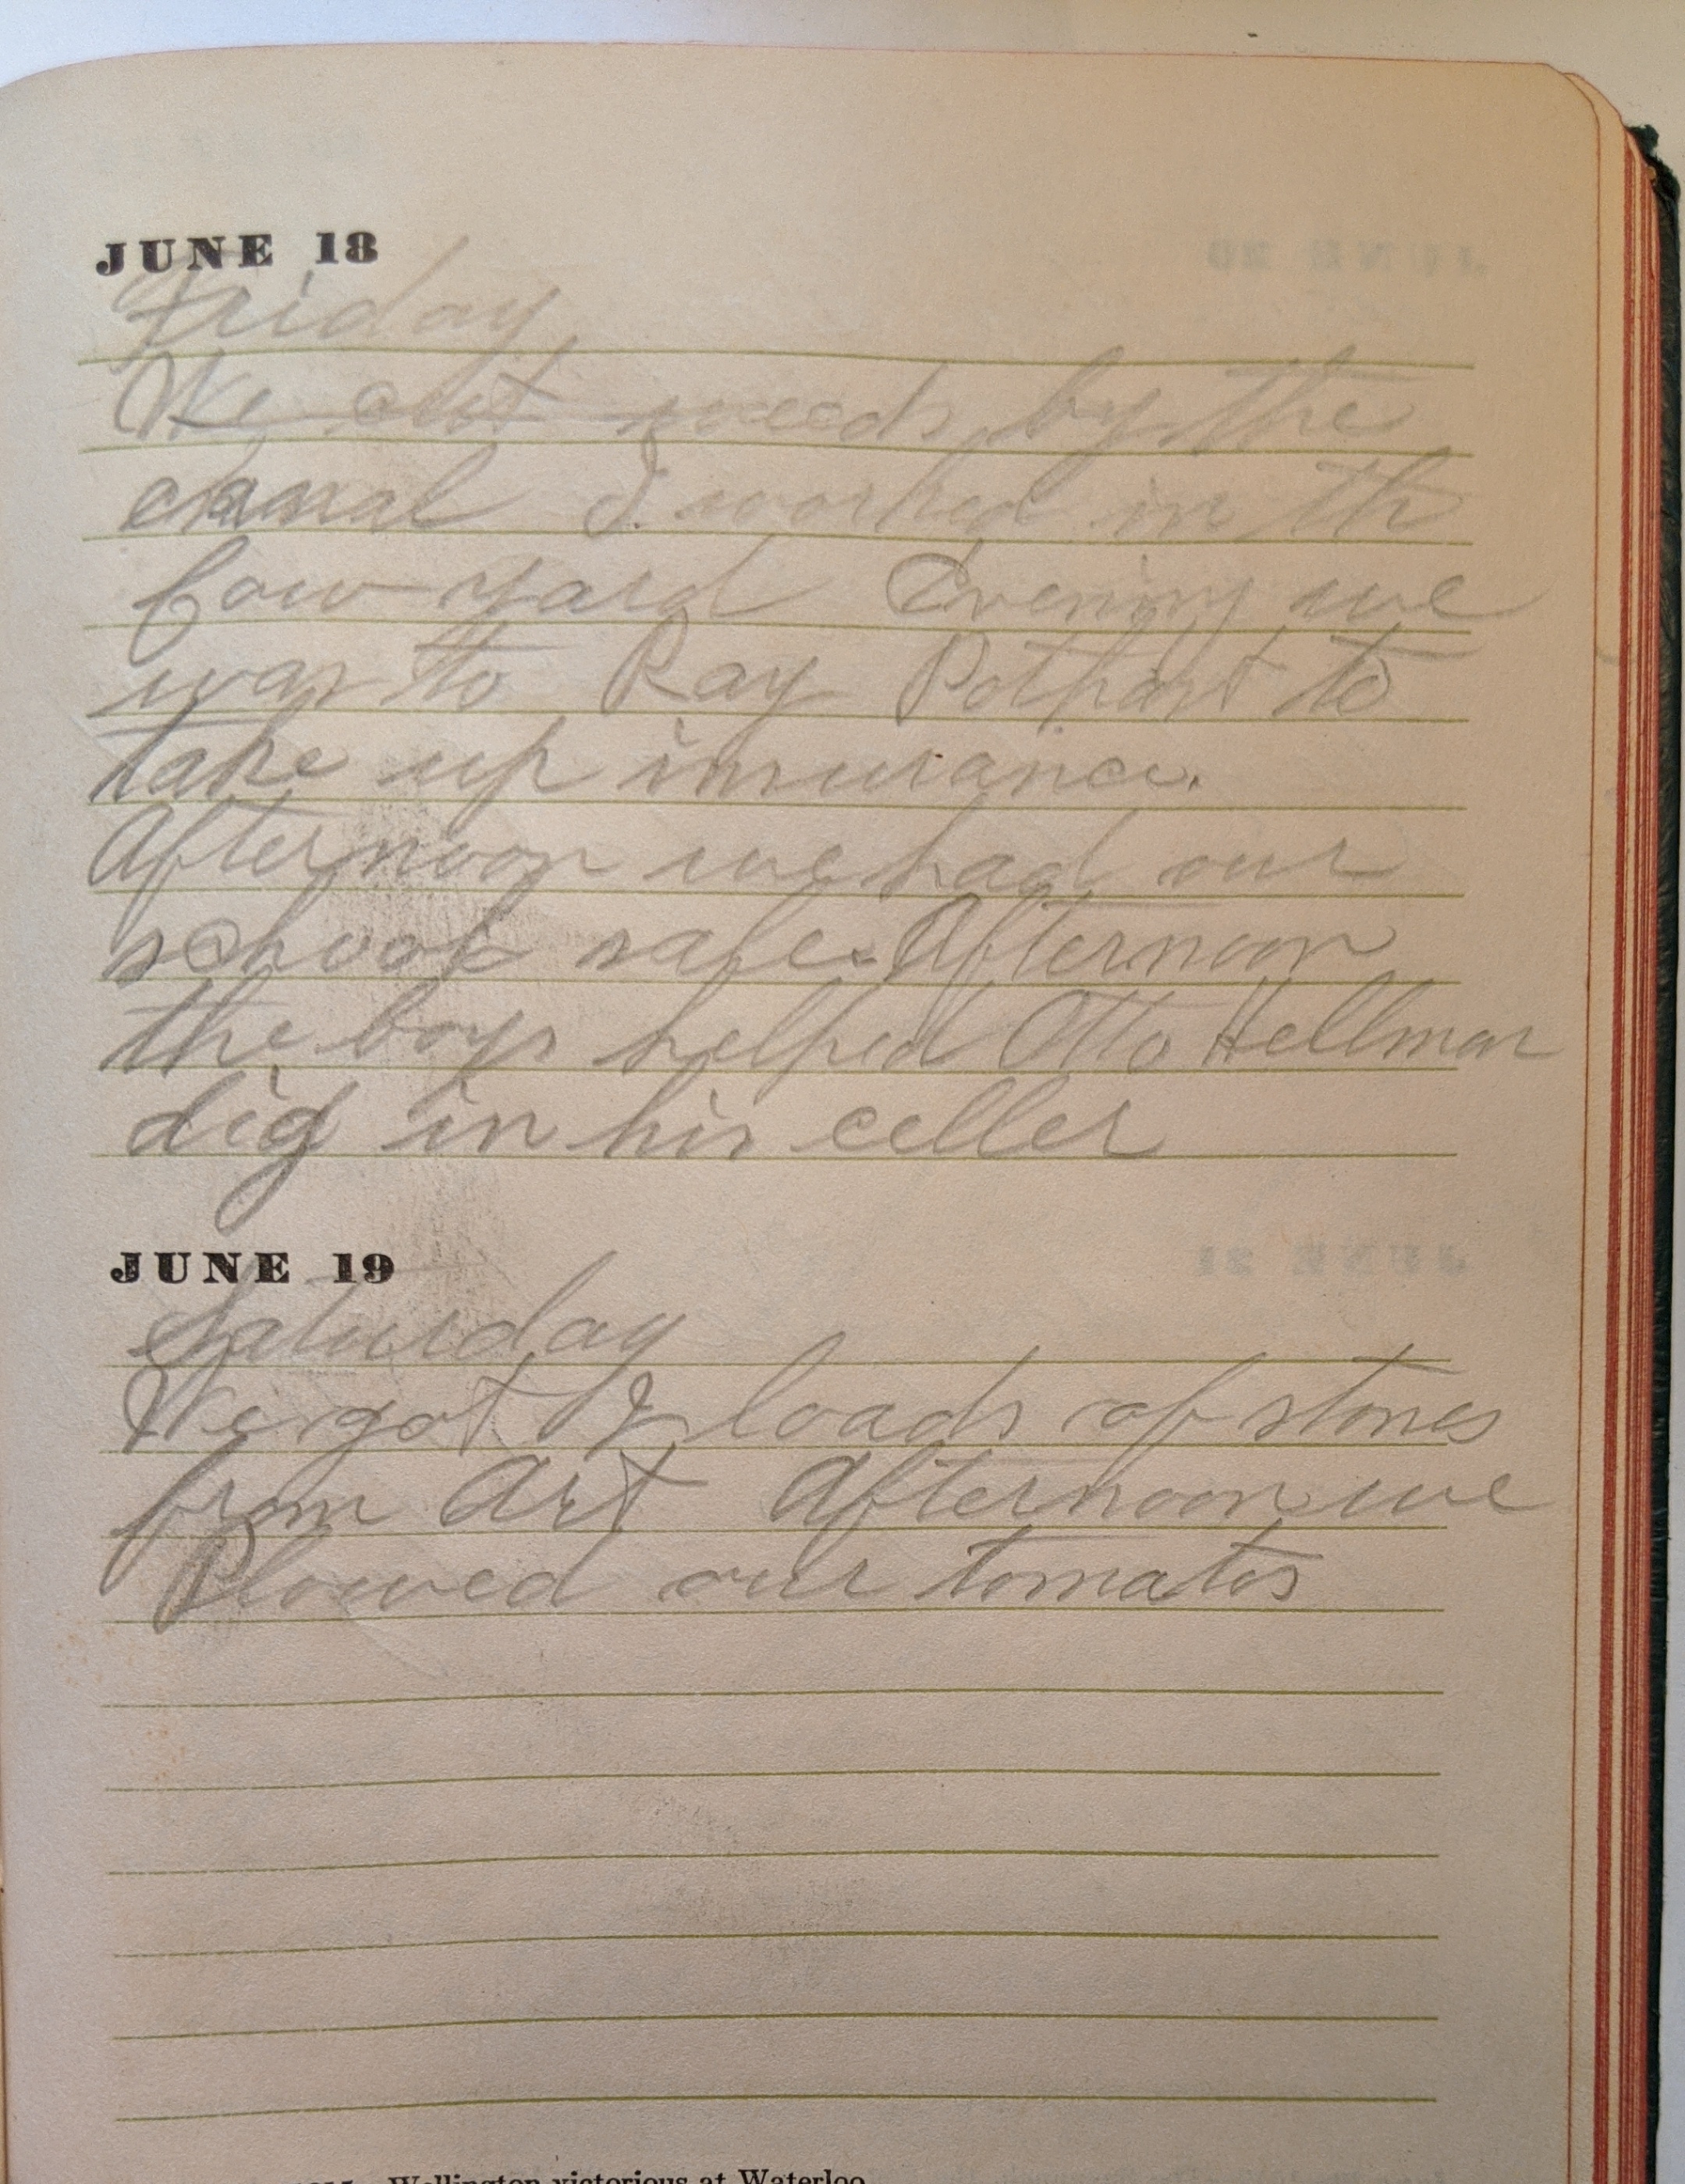 JUNE 18
Friday
We cut weeds by the
canal I worked in th
Cow yard Evening we
was to Ray Pothast to
take up insurance.
Afternoon we had our
school sale. Afternoon
the boys helped Otto Hellman
dig in his celler
JUNE 19
Saturday
We got 2 loads of stones
from Art Afternoon we
Plowed our tomatos
Wellington victorious at Waterloo